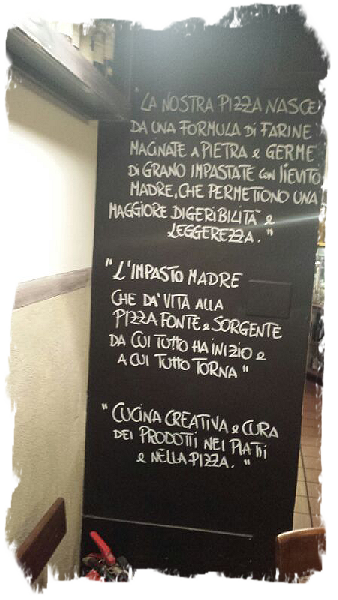 "LA NOSTRA PIZZA NASCE
DA UNA FORMULA DI FARINE
MACINATE A PIETRA e GERME
DI GRANO IMPASTATE CON LIEVITO
MADRE, CHE PERMETTONO UNA
MAGGIORE DIGERIBILITÀ e
LEGGEREZZA."
"L'IMPASTO MADRE
CHE DA' VITA ALLA
PIZZA FONTE e SORGENTE
DA CUI TUTTO HA INIZIO e
A CUI TUTTO TORNA"
"CUCINA CREATIVA e CURA
DEI PRODOTTI NEI PIATTI
e NELLA PIZZA."